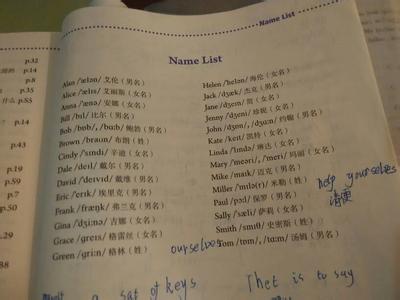 Name List
Name List
Alan /'ælən/ 艾伦（男名）
Alice /'ælɪs/ 艾丽斯（女名）
Anna /'ænə/ 安娜（女名）
Bill /bɪl/ 比尔（男名）
Bob /bɒb/, /bɑ:b/ 鲍勃（男名）
Brown /braʊn/ 布朗（姓）
Cindy /'sɪndi/ 辛迪（女名）
Dale /deɪl/ 戴尔（男名）
David /'deɪvɪd/ 戴维（男名）
Eric /'erɪk/ 埃里克（男名）
Frank /fræŋk/ 弗兰克（男名）
Gina /'dʒi:nə/ 吉娜（女名）
Grace /greɪs/ 格雷丝（女名）
Green /gri:n/ 格林（姓）
Helen /'helən/ 海伦（女名）
Jack /dʒæk/ 杰克（男名）
Jane /dʒeɪn/ 简（女名）
Jenny /'dʒeni/ 珍妮（女名）
John /dʒɒn/, /dʒɑ:n/ 约翰（男名）
Kate /keɪt/ 凯特（女名）
Linda /'lɪndə/ 琳达（女名）
Mary /'meəri/, /'meri/ 玛丽（女名）
Mike /maɪk/ 迈克（男名）
Miller /'mɪlə(r)/ 米勒（姓）
Paul /pɔ:l/ 保罗（男名）
Sally /'sæli/ 萨莉（女名）
Smith /smɪθ/ 史密斯（姓）
Tom /tɒm/, /tɑ:m/ 汤姆（男名）
yourselves
ourselves
a set of keys
That is to say
p.32
p.14
p.8
p.35
p.14
p.55
p.7
p.59
p.50
p.29